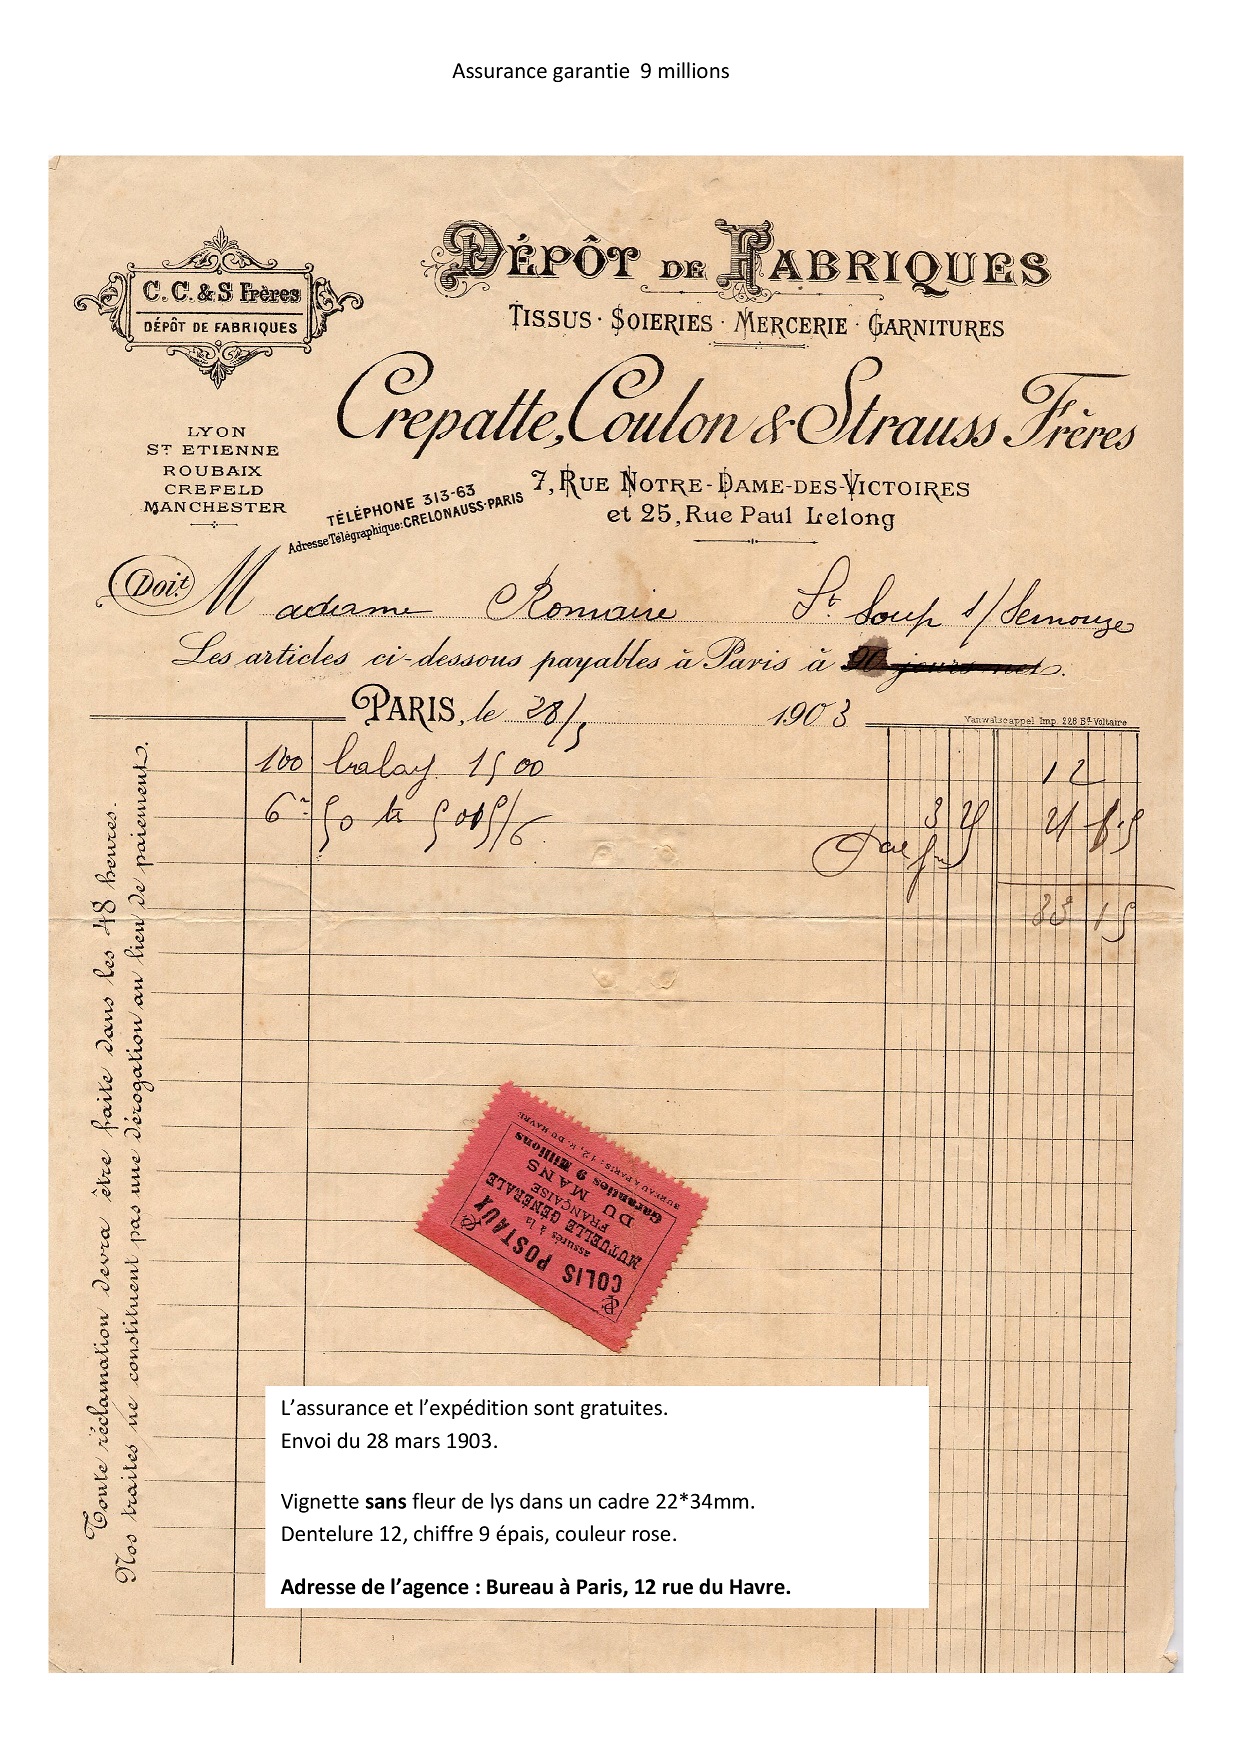 Assurance garantie 9 millions
C. C. & S Frères
DÉPÔT DE FABRIQUES
DÉPÔT DE FABRIQUES
TISSUS · SOIERIES · MERCERIE · GARNITURES
Crepatte, Coulon & Strauss Frères
LYON
ST ETIENNE
ROUBAIX
CREFELD
MANCHESTER
TÉLÉPHONE 313-63
Adresse Télégraphique: CRELONAUSS-PARIS
7, RUE NOTRE-DAME-DES-VICTOIRES
et 25, Rue Paul Lelong
Doit Madame Romaire St Loup s/ Semouze
Les articles ci-dessous payables à Paris à 90 jours net.
PARIS, le 28/3 1903
Vanwalscappel Imp. 226 Bd Voltaire
100 balay. 1500 12
6 50 3 25 21
33 15
Toute réclamation devra être faite dans les 48 heures.
Nos traites ne constituent pas une dérogation au lieu de paiement.
COLIS POSTAUX
assurés à la
MUTUELLE GÉNÉRALE
FRANÇAISE
DU MANS
Garanties 9 Millions
BUREAU A PARIS: 12, R. DU HAVRE
L’assurance et l’expédition sont gratuites.
Envoi du 28 mars 1903.
Vignette sans fleur de lys dans un cadre 22*34mm.
Dentelure 12, chiffre 9 épais, couleur rose.
Adresse de l’agence : Bureau à Paris, 12 rue du Havre.